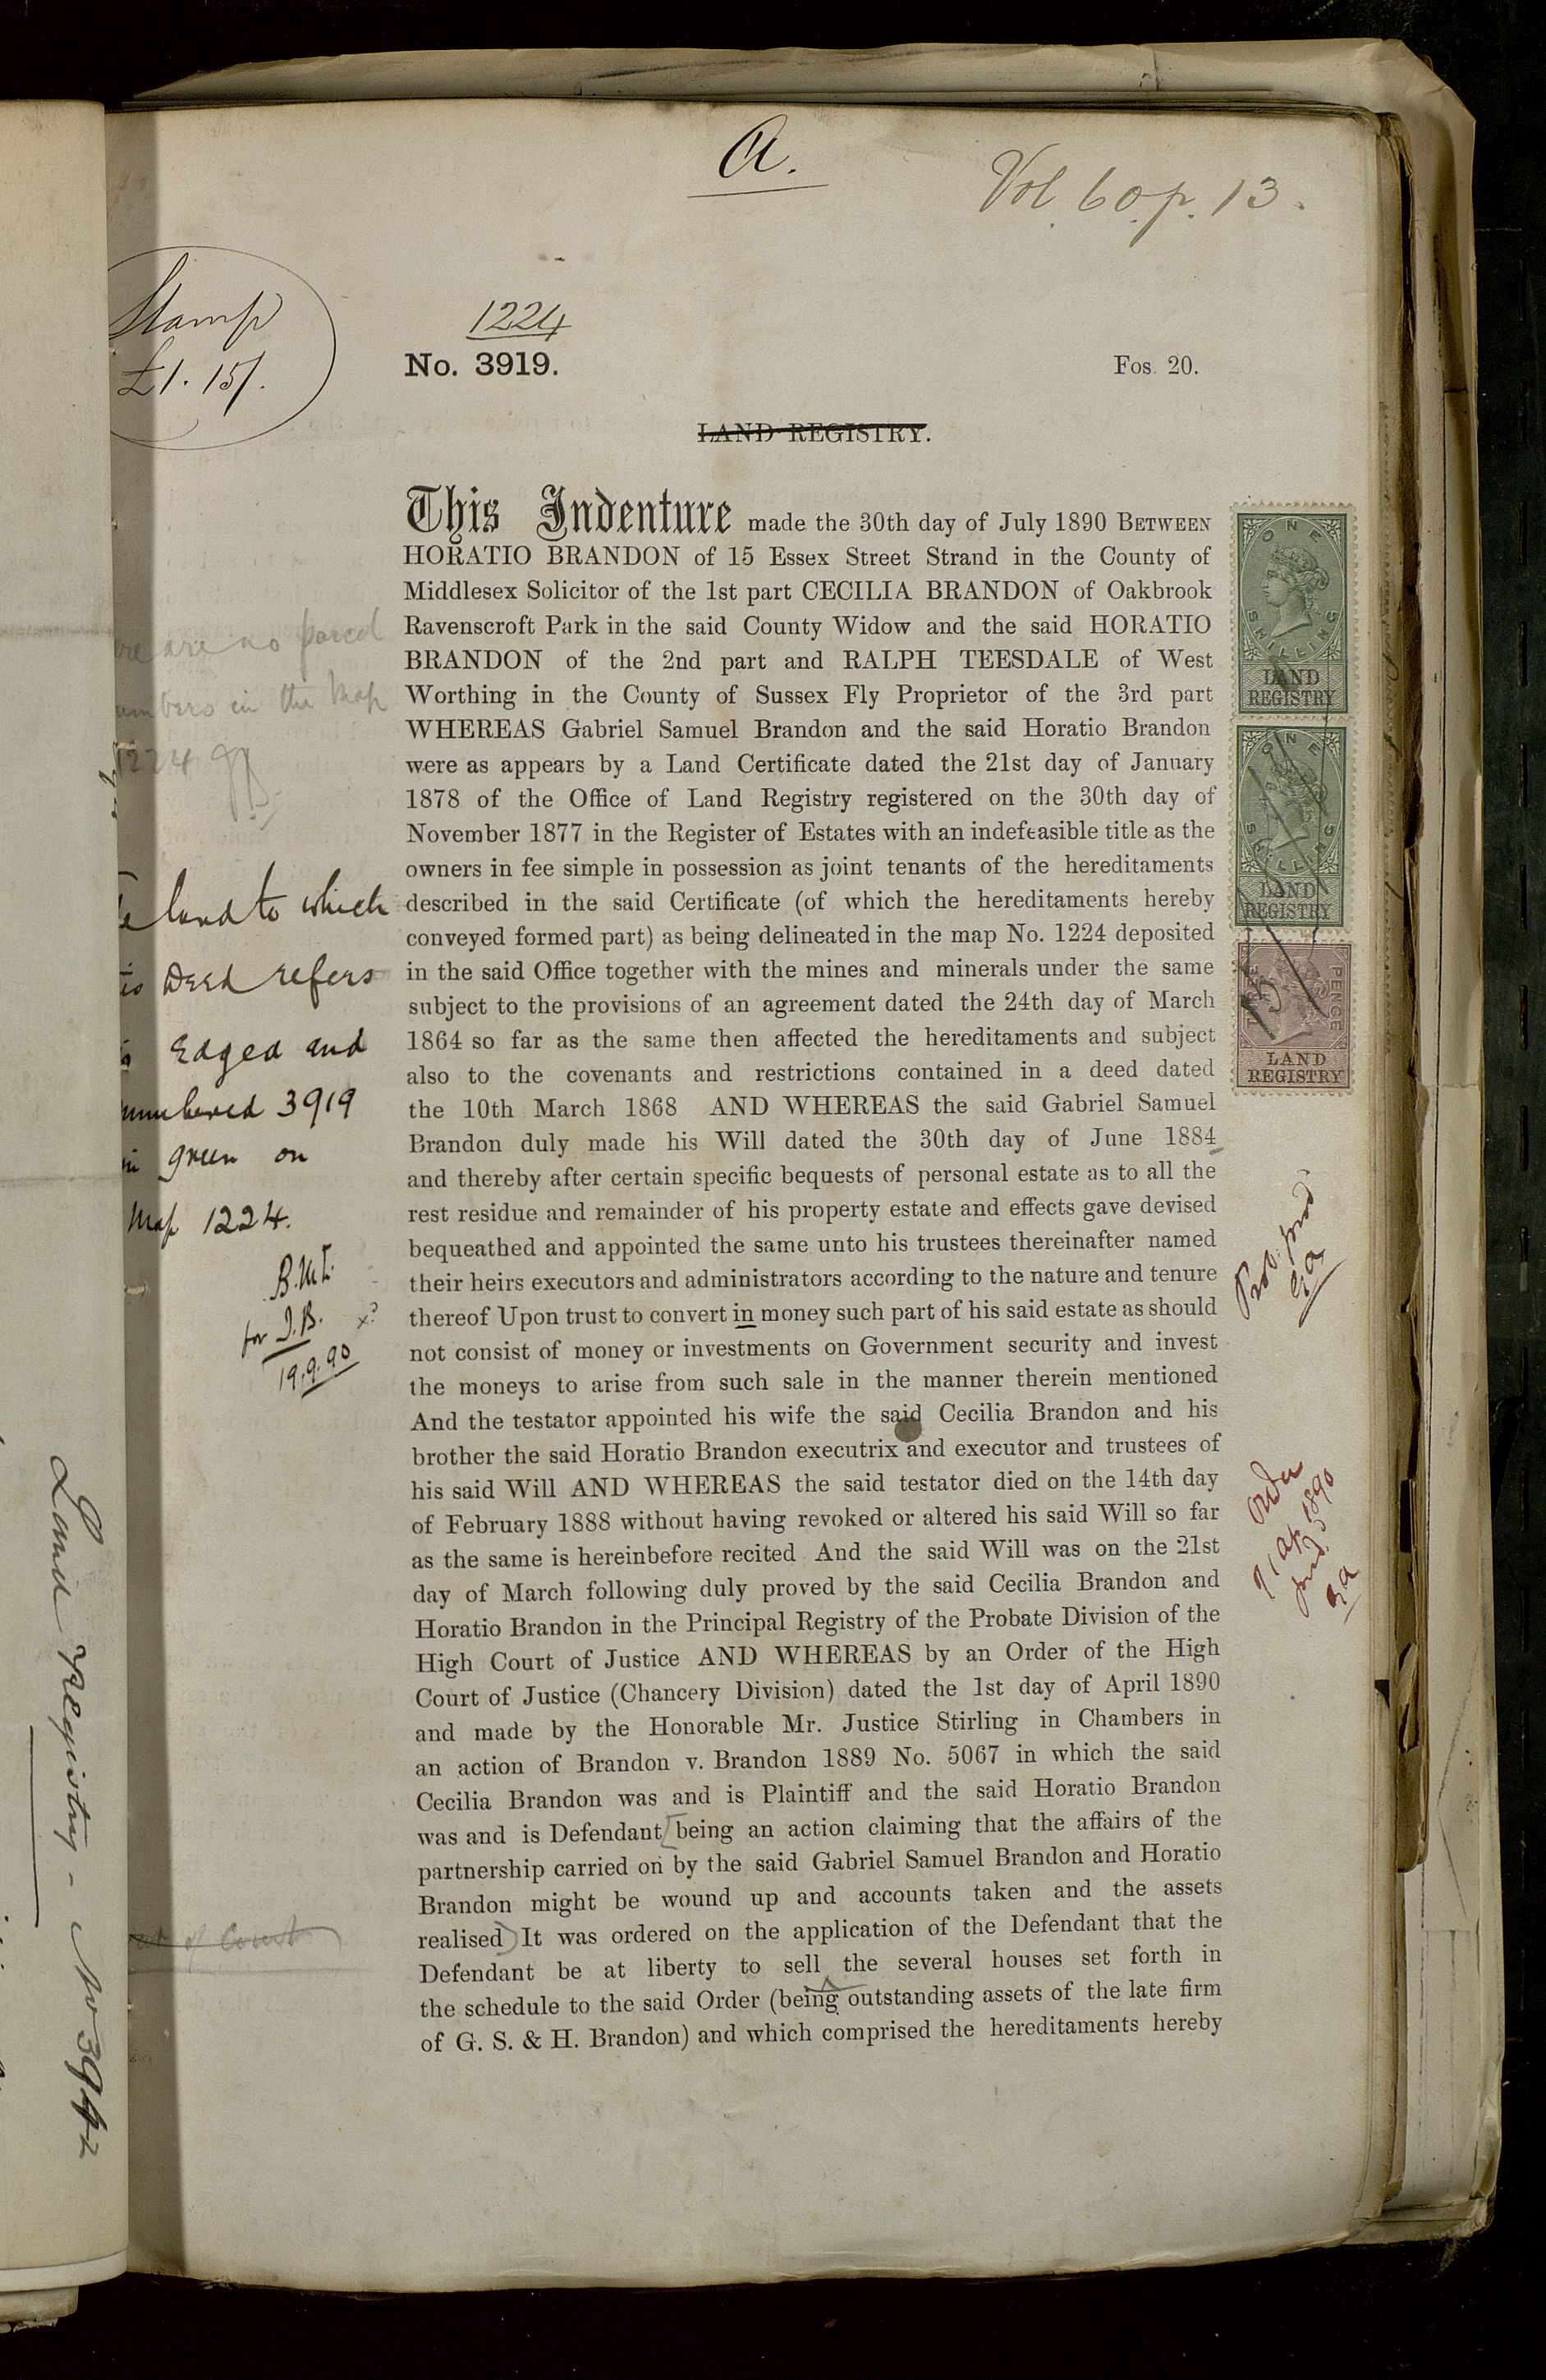 a.
Vol. 60. p. 13.
Stamp
£1. 15/.
1224
No. 3919.
Fos. 20.
LAND REGISTRY.
This Indenture made the 30th day of July 1890 BETWEEN
HORATIO BRANDON of 15 Essex Street Strand in the County of
Middlesex Solicitor of the 1st part CECILIA BRANDON of Oakbrook
Ravenscroft Park in the said County Widow and the said HORATIO
BRANDON of the 2nd part and RALPH TEESDALE of West
Worthing in the County of Sussex Fly Proprietor of the 3rd part
WHEREAS Gabriel Samuel Brandon and the said Horatio Brandon
were as appears by a Land Certificate dated the 21st day of January
1878 of the Office of Land Registry registered on the 30th day of
November 1877 in the Register of Estates with an indefeasible title as the
owners in fee simple in possession as joint tenants of the hereditaments
described in the said Certificate (of which the hereditaments hereby
conveyed formed part) as being delineated in the map No. 1224 deposited
in the said Office together with the mines and minerals under the same
subject to the provisions of an agreement dated the 24th day of March
1864 so far as the same then affected the hereditaments and subject
also to the covenants and restrictions contained in a deed dated
the 10th March 1868 AND WHEREAS the said Gabriel Samuel
Brandon duly made his Will dated the 30th day of June 1884
and thereby after certain specific bequests of personal estate as to all the
rest residue and remainder of his property estate and effects gave devised
bequeathed and appointed the same unto his trustees thereinafter named
their heirs executors and administrators according to the nature and tenure
thereof Upon trust to convert in money such part of his said estate as should
not consist of money or investments on Government security and invest
the moneys to arise from such sale in the manner therein mentioned
And the testator appointed his wife the said Cecilia Brandon and his
brother the said Horatio Brandon executrix and executor and trustees of
his said Will AND WHEREAS the said testator died on the 14th day
of February 1888 without having revoked or altered his said Will so far
as the same is hereinbefore recited And the said Will was on the 21st
day of March following duly proved by the said Cecilia Brandon and
Horatio Brandon in the Principal Registry of the Probate Division of the
High Court of Justice AND WHEREAS by an Order of the High
Court of Justice (Chancery Division) dated the 1st day of April 1890
and made by the Honorable Mr. Justice Stirling in Chambers in
an action of Brandon v. Brandon 1889 No. 5067 in which the said
Cecilia Brandon was and is Plaintiff and the said Horatio Brandon
was and is Defendant [being an action claiming that the affairs of the
partnership carried on by the said Gabriel Samuel Brandon and Horatio
Brandon might be wound up and accounts taken and the assets
realised) It was ordered on the application of the Defendant that the
Defendant be at liberty to sell the several houses set forth in
the schedule to the said Order (being outstanding assets of the late firm
of G. S. & H. Brandon) and which comprised the hereditaments hereby
are no parcel
in the Map
1224
land to which
Deed refers
Edged and
numbered 3919
in green on
Map 1224.
B.M.L.
for J.B.
19.9.90
of Court
ONE
SHILLING
LAND
REGISTRY
ONE
SHILLING
LAND
REGISTRY
PENCE
LAND
REGISTRY
Order
1 Ap 1890
Land Registry - No 3942